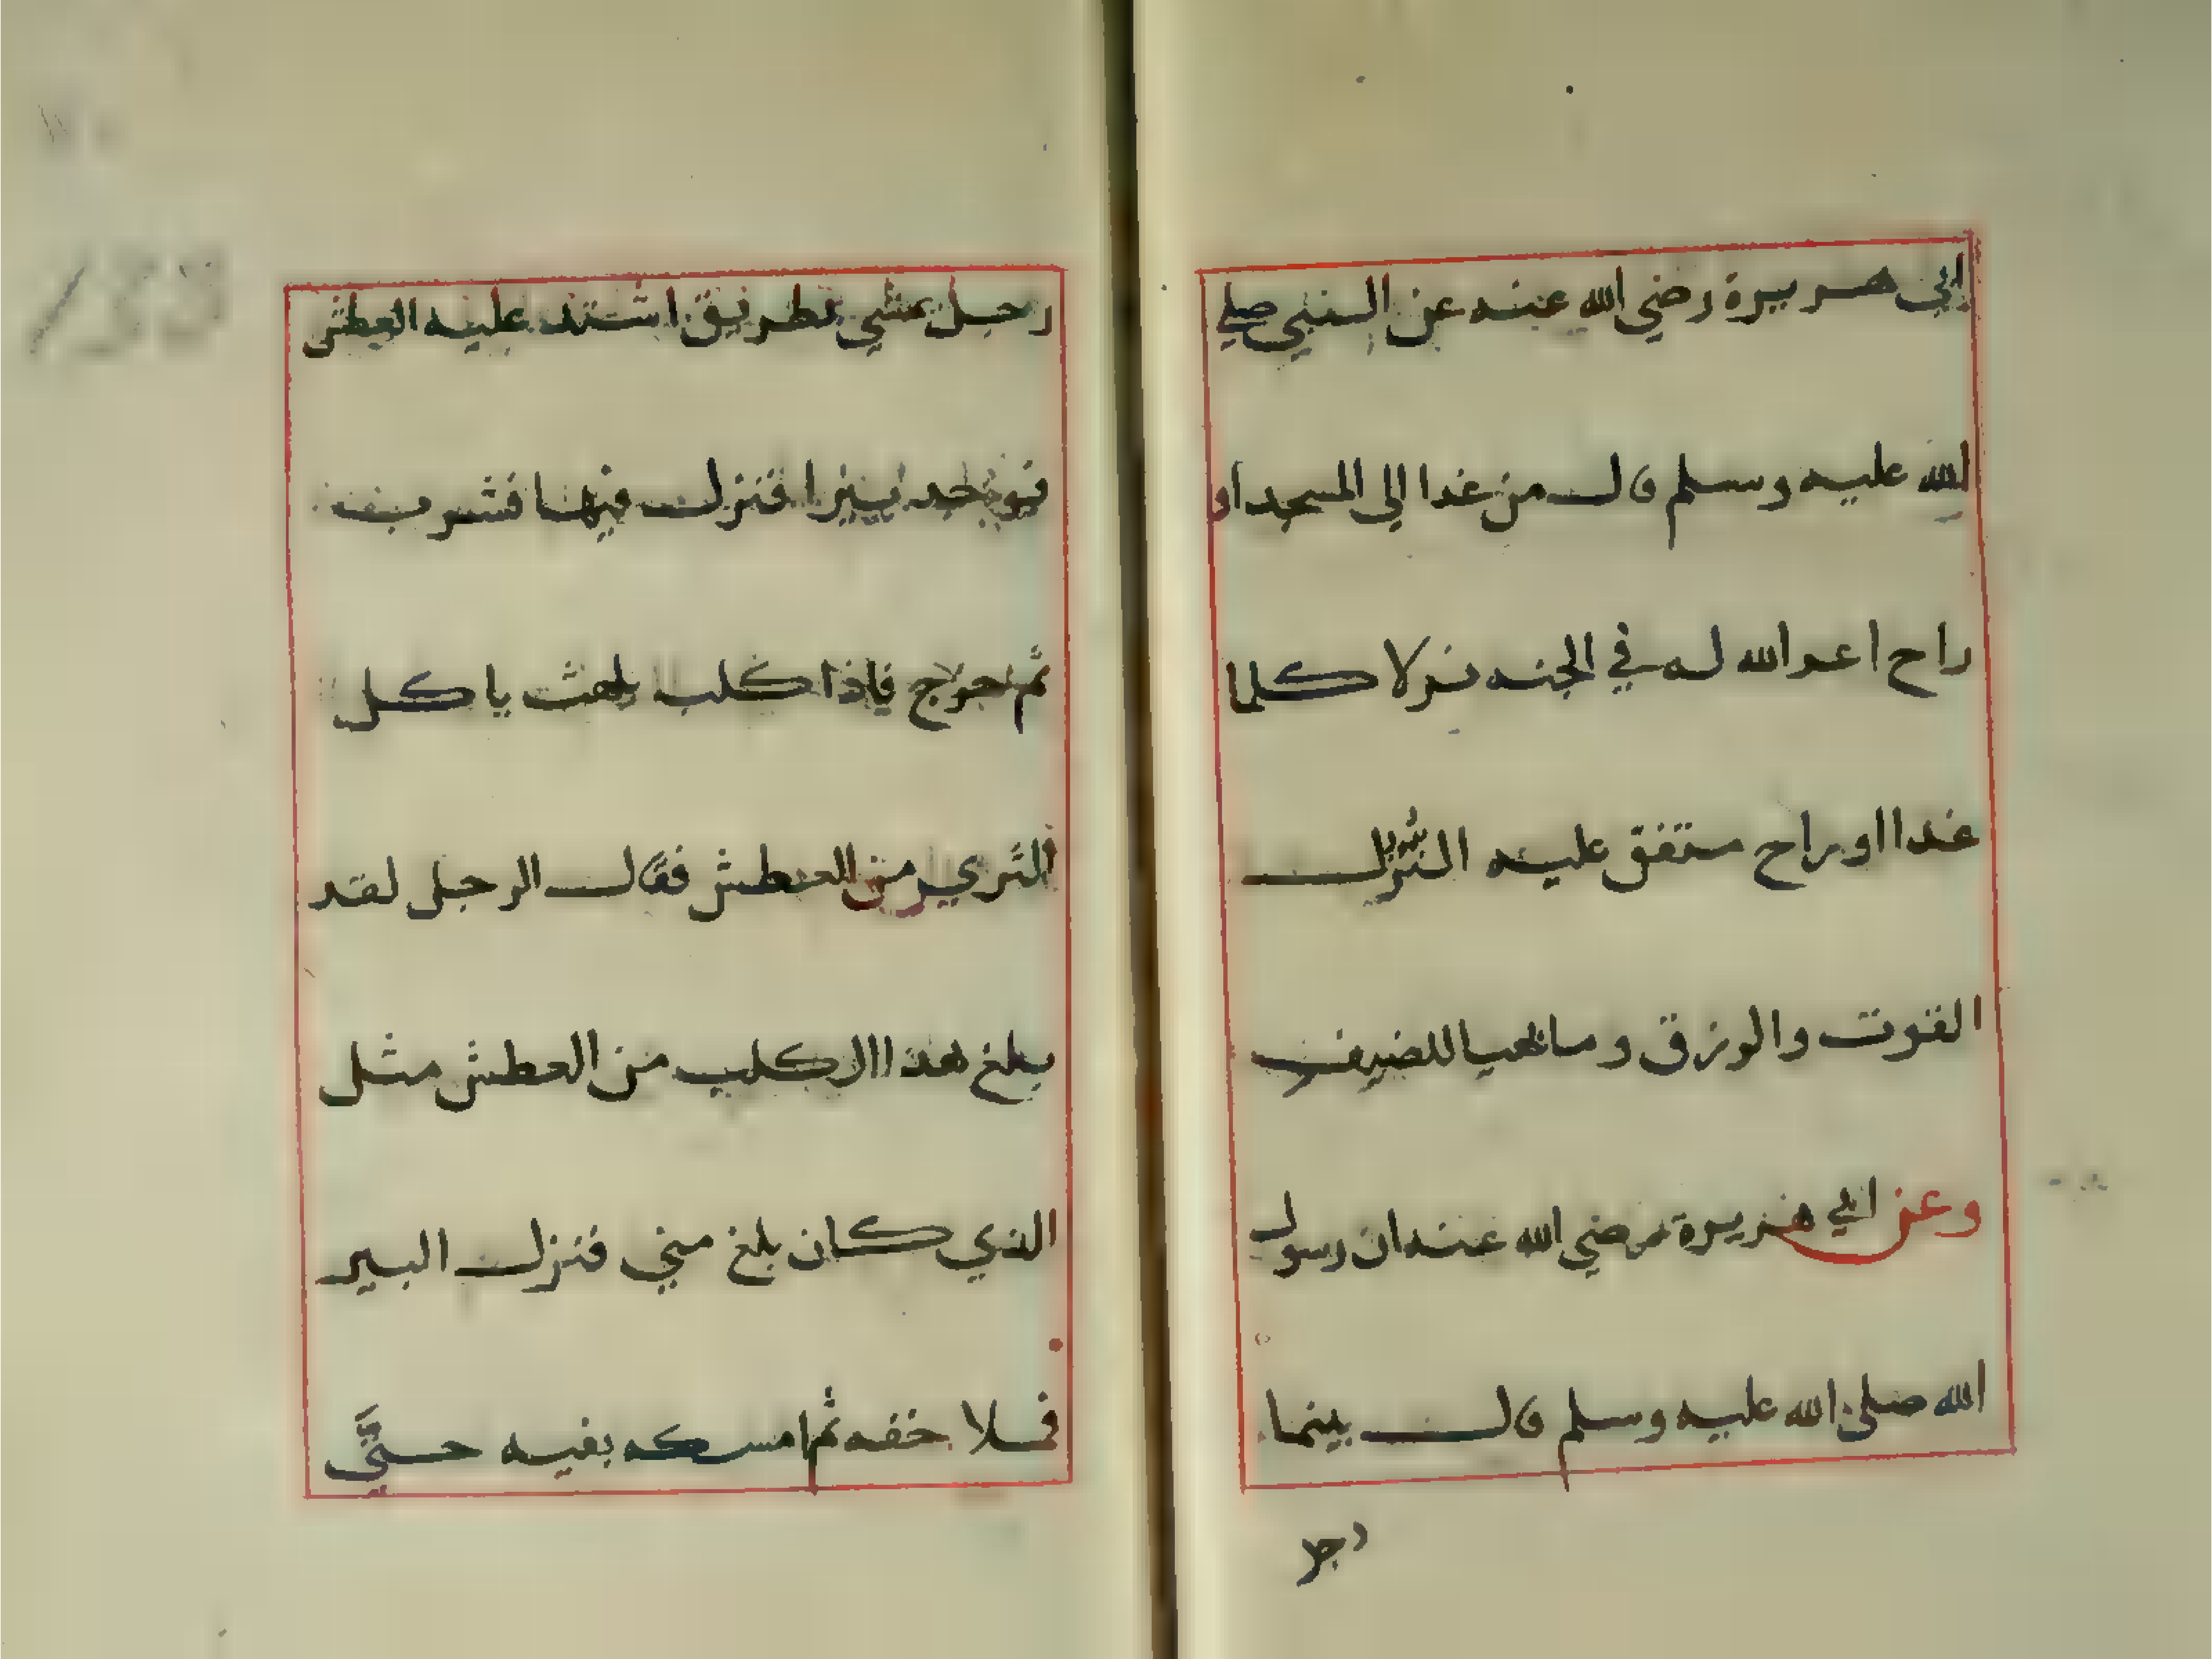 ابي هريرة رضي الله عنه عن النبي صلي
الله عليه وسلم قال من غدا الى المسجد او
راح اعد الله له في الجنه نزلا كلما
غدا او راح متفق عليه النزل
القوت والرزق وما يهيا للضيف
وعن ابي هريرة رضي الله عنه ان رسول
الله صلى الله عليه وسلم قال بينما
رجل
رجل يمشي بطريق اشتد عليه العطش
فوجد بيرا فنزل فيها فشرب
ثم خرج فاذا كلب يلهث ياكل
الثري من العطش فقال الرجل لقد
بلغ هذا الكلب من العطش مثل
الذي كان بلغ مني فنزل البير
فملا خفه ثم امسكه بفيه حتي